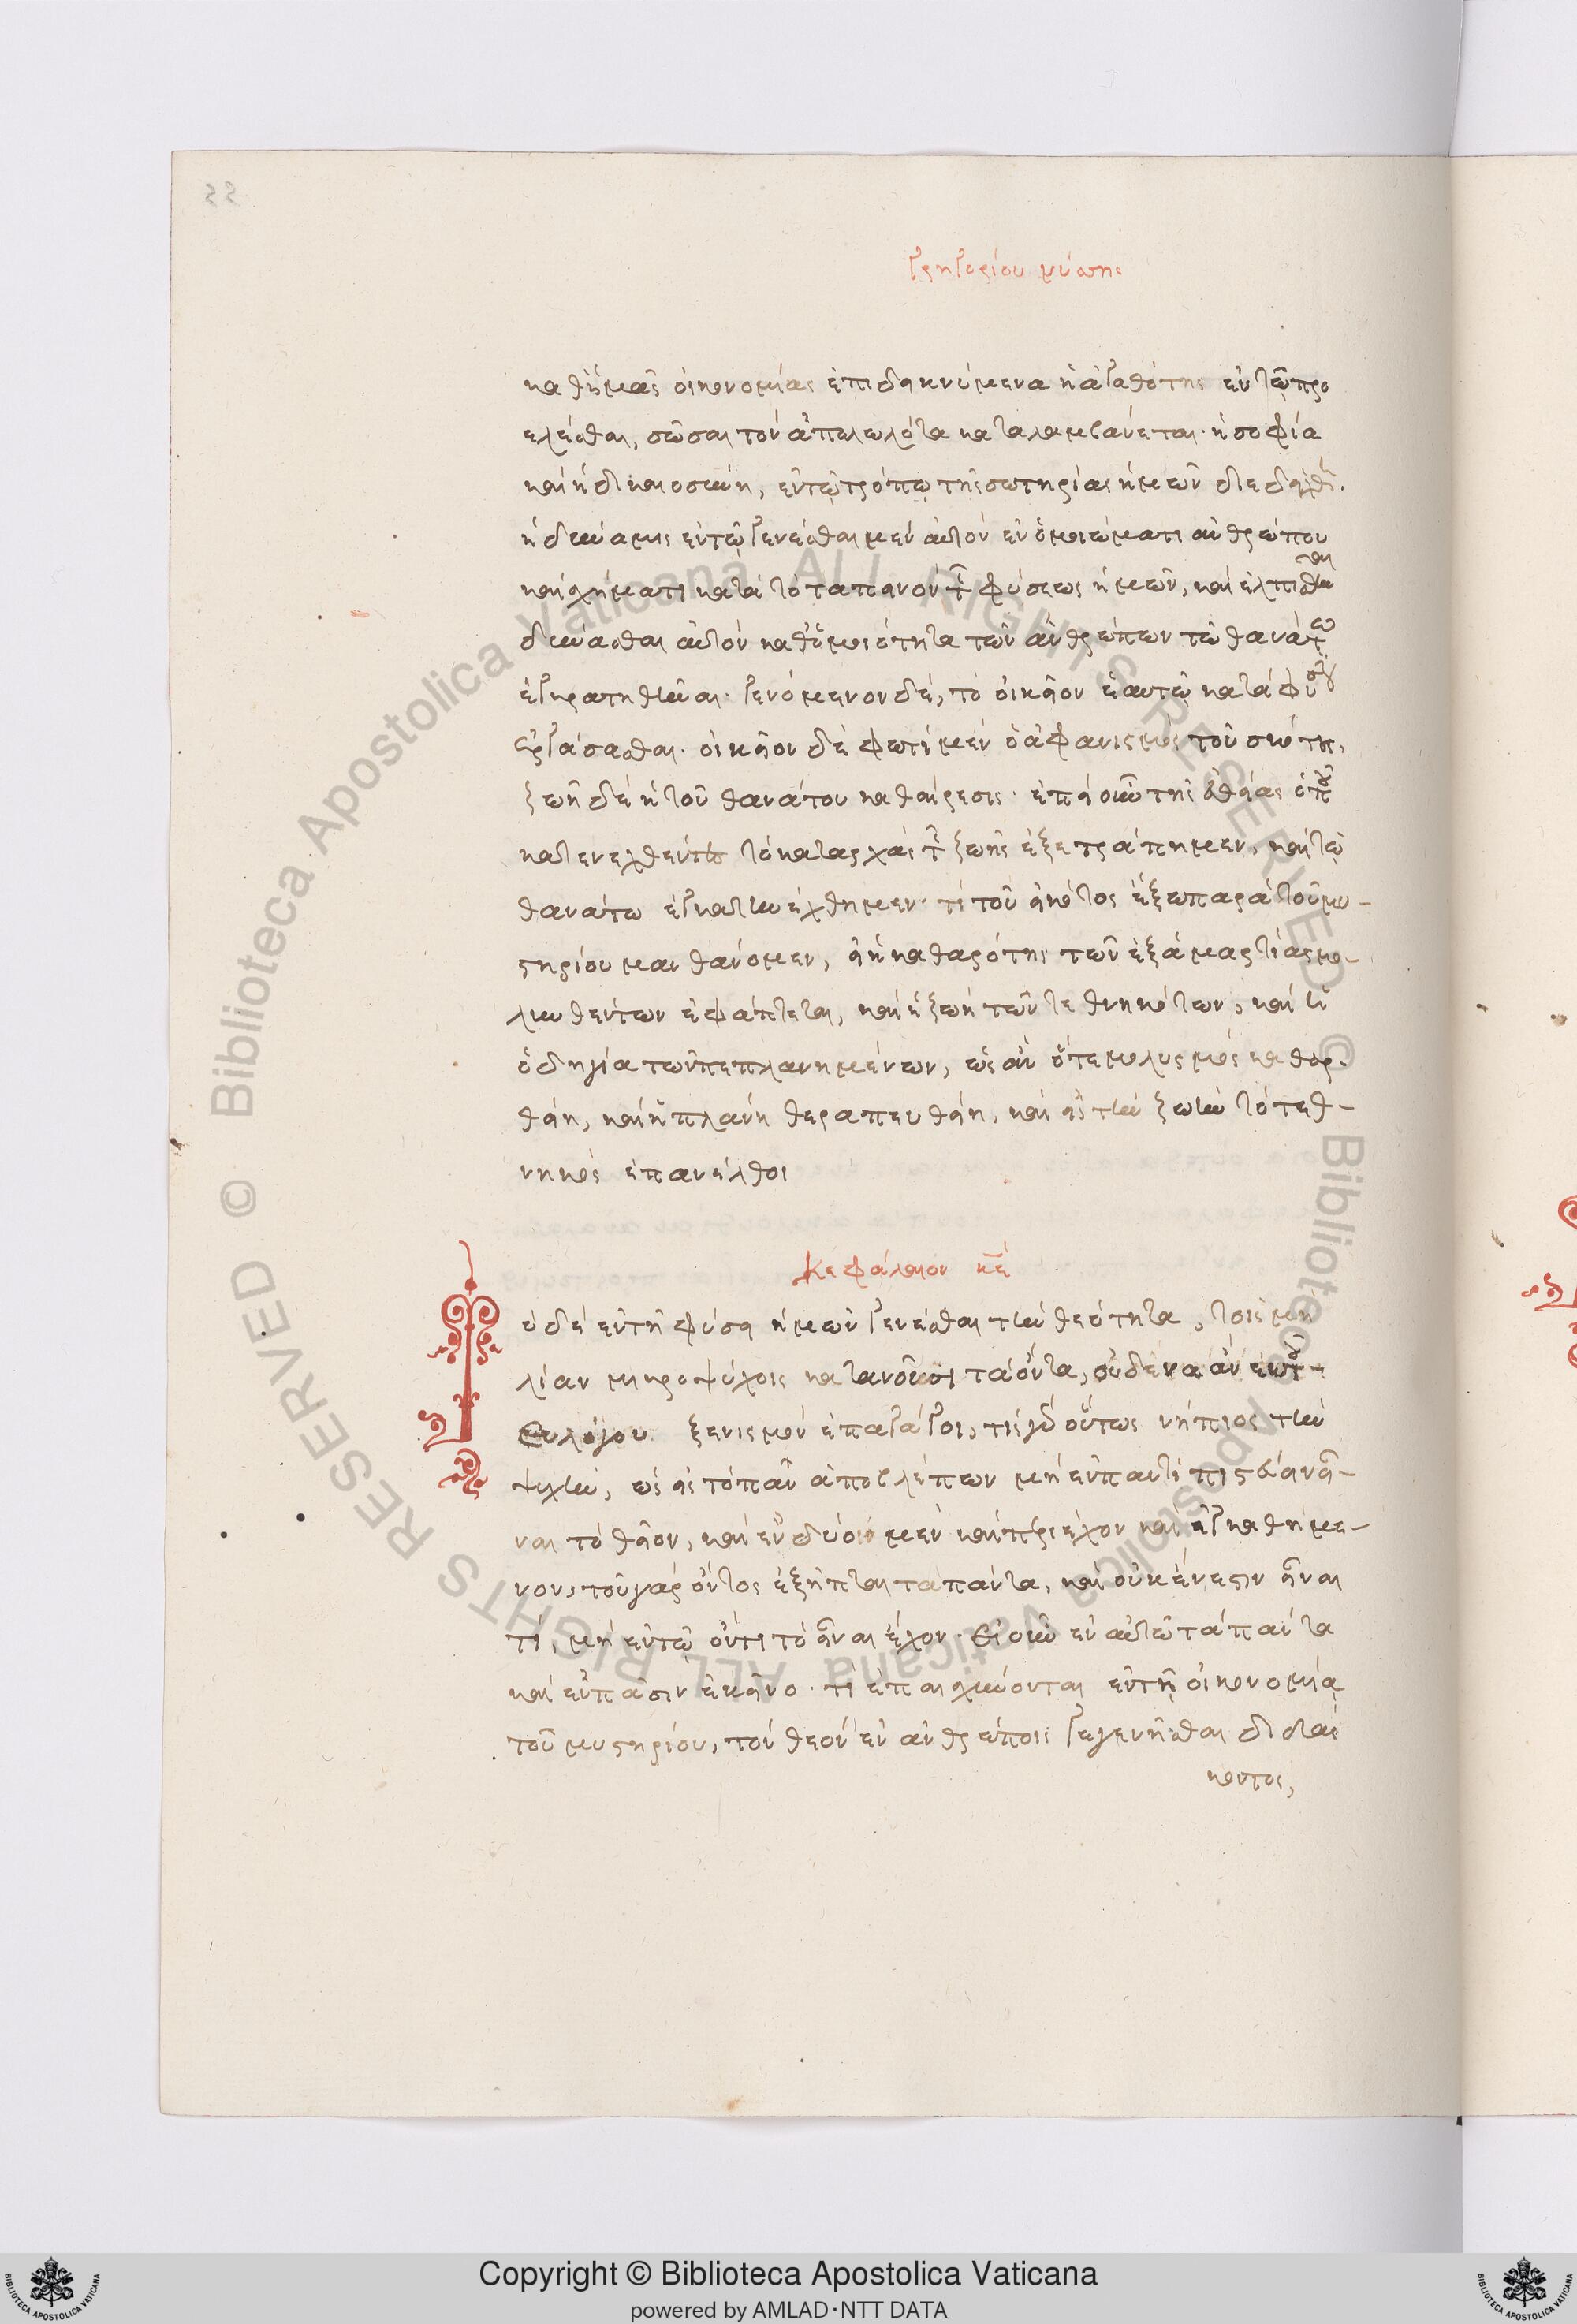 γρηγορίου νύσης
καθ' ἡμᾶς οἰκονομίας ἐπιδεικνύμενα ἡ ἀγαθότης ἐν τῷ προ
ελέσθαι, σῶσαι τὸν ἀπολωλότα καταλαμβάνεται· ἡ σοφία
καὶ ἡ δικαιοσύνη, ἐν τῷ τρόπῳ τῆς σωτηρίας ἡμῶν διεδείχθη.
ἡ δύναμις ἐν τῷ γενέσθαι μὲν αὐτὸν ἐν ὁμοιώματι ἀνθρώπου
καὶ σχήματι κατὰ τὸ ταπεινὸν τῆς φύσεως ἡμῶν, καὶ ἐλπισθῆναι
δύνασθαι αὐτὸν καθ' ὁμοιότητα τῶν ἀνθρώπων τῷ θανάτω
ἐγκρατηθῆναι· γενόμενον δέ, τὸ οἰκεῖον ἑαυτῷ κατὰ φύσιν
ἐργάσασθαι· οἰκεῖον δὲ φωτὶ μὲν ὁ ἀφανισμὸς τοῦ σκότους,
ζωῆ δὲ ἡ τοῦ θανάτου καθαίρεσις· ἐπεὶ οὖν τῆς εὐθείας ὁδοῦ
παρενεχθέντες τὸ καταρχὰς τῆς ζωῆς ἐξετράπημεν, καὶ τῷ
θανάτω ἐγκατηνέχθημεν· τί τοῦ εἰκότος ἔξω παρὰ τοῦ μυ-
στηρίου μανθάνομεν, εἰ ἡ καθαρότης τῶν ἐξ ἁμαρτίας μο-
λυνθέντων ἐφάπτεται, καὶ ἡ ζωὴ τῶν τεθνηκότων, καὶ ἡ
ὁδηγία τῶν πεπλανημένων, ὡς ἂν ὅ τε μολυσμὸς καθαρ-
θείη, καὶ ἡ πλάνη θεραπευθείη, καὶ εἰς τὴν ζωὴν τὸ τεθ-
νηκὸς ἐπανέλθοι
Κεφάλαιον κε
ὸ δὲ ἐν τῆ φύσει ἡμῶν γενέσθαι τὴν θεότητα, τοῖς μὴ
λίαν μικροψύχοις κατανοοῦσι τὰ ὄντα, οὐδένα ἂν ἐκ τοῦ
εὐλόγου ξενισμὸν ἐπαγάγοι, τίς γὰρ οὕτως νήπιος τὴν
ψυχὴν, ὡς εἰς τὸ πᾶν ἀποβλέπων μὴ ἐν παντὶ πιστεύειν εἶ-
ναι τὸ θεῖον, καὶ ἐνδύον μὲν καὶ περιέχον καὶ ἐγκαθήμε-
νον, τοῦ γὰρ ὄντος ἐξῆπται τὰ πάντα, καὶ οὐκ ἔνεστιν εἶναι
τί, μὴ ἐν τῷ ὄντι τὸ εἶναι ἔχον· Εἰ οὖν ἐν αὐτῷ τὰ πάντα
καὶ ἐν πᾶσιν ἐκεῖνο· τί ἐπαισχύνονται ἐν τῇ οἰκονομίᾳ
τοῦ μυστηρίου, τὸν θεὸν ἐν ἀνθρώποις γεγενῆσθαι διδάσ
κοντος,
Copyright © Biblioteca Apostolica Vaticana
powered by AMLAD·NTT DATA